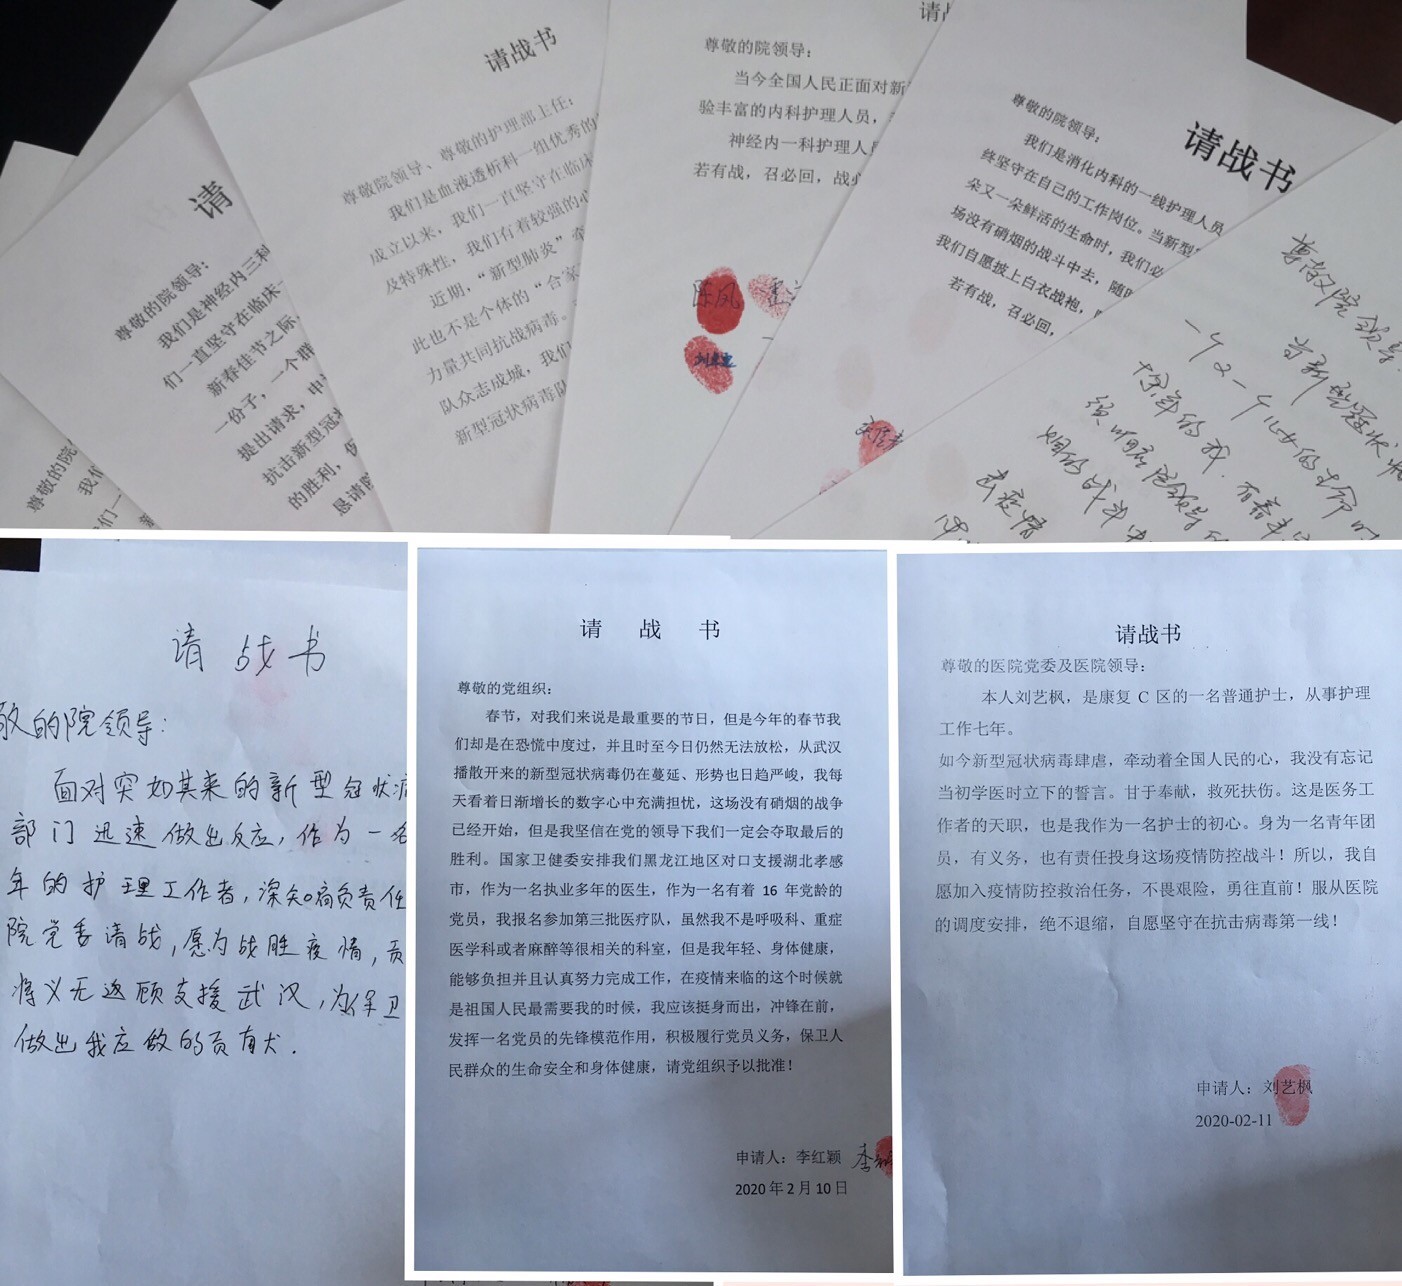 请
尊敬的院领导：
我们是神经内三科
们一直坚守在临床一
新春佳节之际
一份子，一个群
提出请求，申
抗击新型冠
的胜利，
恳请
尊敬的院
我们
请战书
尊敬院领导、尊敬的护理部主任：
我们是血液透析科一组优秀的
成立以来，我们一直坚守在临床
及特殊性，我们有着较强的心
近期，“新型肺炎”牵
此也不是个体的“合家
力量共同抗战病毒。
队众志成城，我们
新型冠状病毒队
请
尊敬的院领导：
当今全国人民正面对新
验丰富的内科护理人员，
神经内一科护理人员
若有战，召必回，战必
陈凤
请战书
尊敬的院领导：
我们是消化内科的一线护理人员
终坚守在自己的工作岗位。当新型
朵又一朵鲜活的生命时，我们必
场没有硝烟的战斗中去，随时
我们自愿披上白衣战袍，
若有战，召必回，
尊敬院领导
当新型冠状病
一个又一个儿女的生命时
余年的我，有着丰
须响应院领导的
烟的战斗中
去疫情
请战书
敬的院领导：
面对突如其来的新型冠状病
部门迅速做出反应，作为一名
年的护理工作者，深知肩负责任
院党委请战，愿为战胜疫情，贡
将义无返顾支援武汉，为保卫
做出我应做的贡献．
请 战 书
尊敬的党组织：
春节，对我们来说是最重要的节日，但是今年的春节我
们却是在恐慌中度过，并且时至今日仍然无法放松，从武汉
播散开来的新型冠状病毒仍在蔓延、形势也日趋严峻，我每
天看着日渐增长的数字心中充满担忧，这场没有硝烟的战争
已经开始，但是我坚信在党的领导下我们一定会夺取最后的
胜利。国家卫健委安排我们黑龙江地区对口支援湖北孝感
市，作为一名执业多年的医生，作为一名有着 16 年党龄的
党员，我报名参加第三批医疗队，虽然我不是呼吸科、重症
医学科或者麻醉等很相关的科室，但是我年轻、身体健康，
能够负担并且认真努力完成工作，在疫情来临的这个时候就
是祖国人民最需要我的时候，我应该挺身而出，冲锋在前，
发挥一名党员的先锋模范作用，积极履行党员义务，保卫人
民群众的生命安全和身体健康，请党组织予以批准！
申请人：李红颖 李
2020 年 2 月 10 日
请战书
尊敬的医院党委及医院领导：
本人刘艺枫，是康复 C 区的一名普通护士，从事护理
工作七年。
如今新型冠状病毒肆虐，牵动着全国人民的心，我没有忘记
当初学医时立下的誓言。甘于奉献，救死扶伤。这是医务工
作者的天职，也是我作为一名护士的初心。身为一名青年团
员，有义务，也有责任投身这场疫情防控战斗！所以，我自
愿加入疫情防控救治任务，不畏艰险，勇往直前！服从医院
的调度安排，绝不退缩，自愿坚守在抗击病毒第一线！
申请人：刘艺枫
2020-02-11